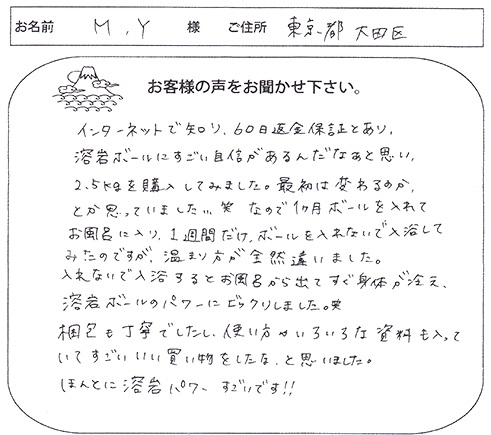 お名前 M.Y 様 ご住所 東京都 大田区
お客様の声をお聞かせ下さい。
インターネットで知り、60日返金保証とあり、
溶岩ボールにすごい自信があるんだなぁと思い、
2.5kgを購入してみました。最初は変わるのか、
とか思っていました… 笑 なので1ヶ月ボールを入れて
お風呂に入り、1週間だけ、ボールを入れないで入浴して
みたのですが、温まり方が全然違いました。
入れないで入浴するとお風呂から出てすぐ身体が冷え、
溶岩ボールのパワーにビックリしました。笑
梱包も丁寧でしたし、使い方やいろいろな資料も入って
いてすごいいい買い物をしたな、と思いました。
ほんとに溶岩パワーすごいです!!